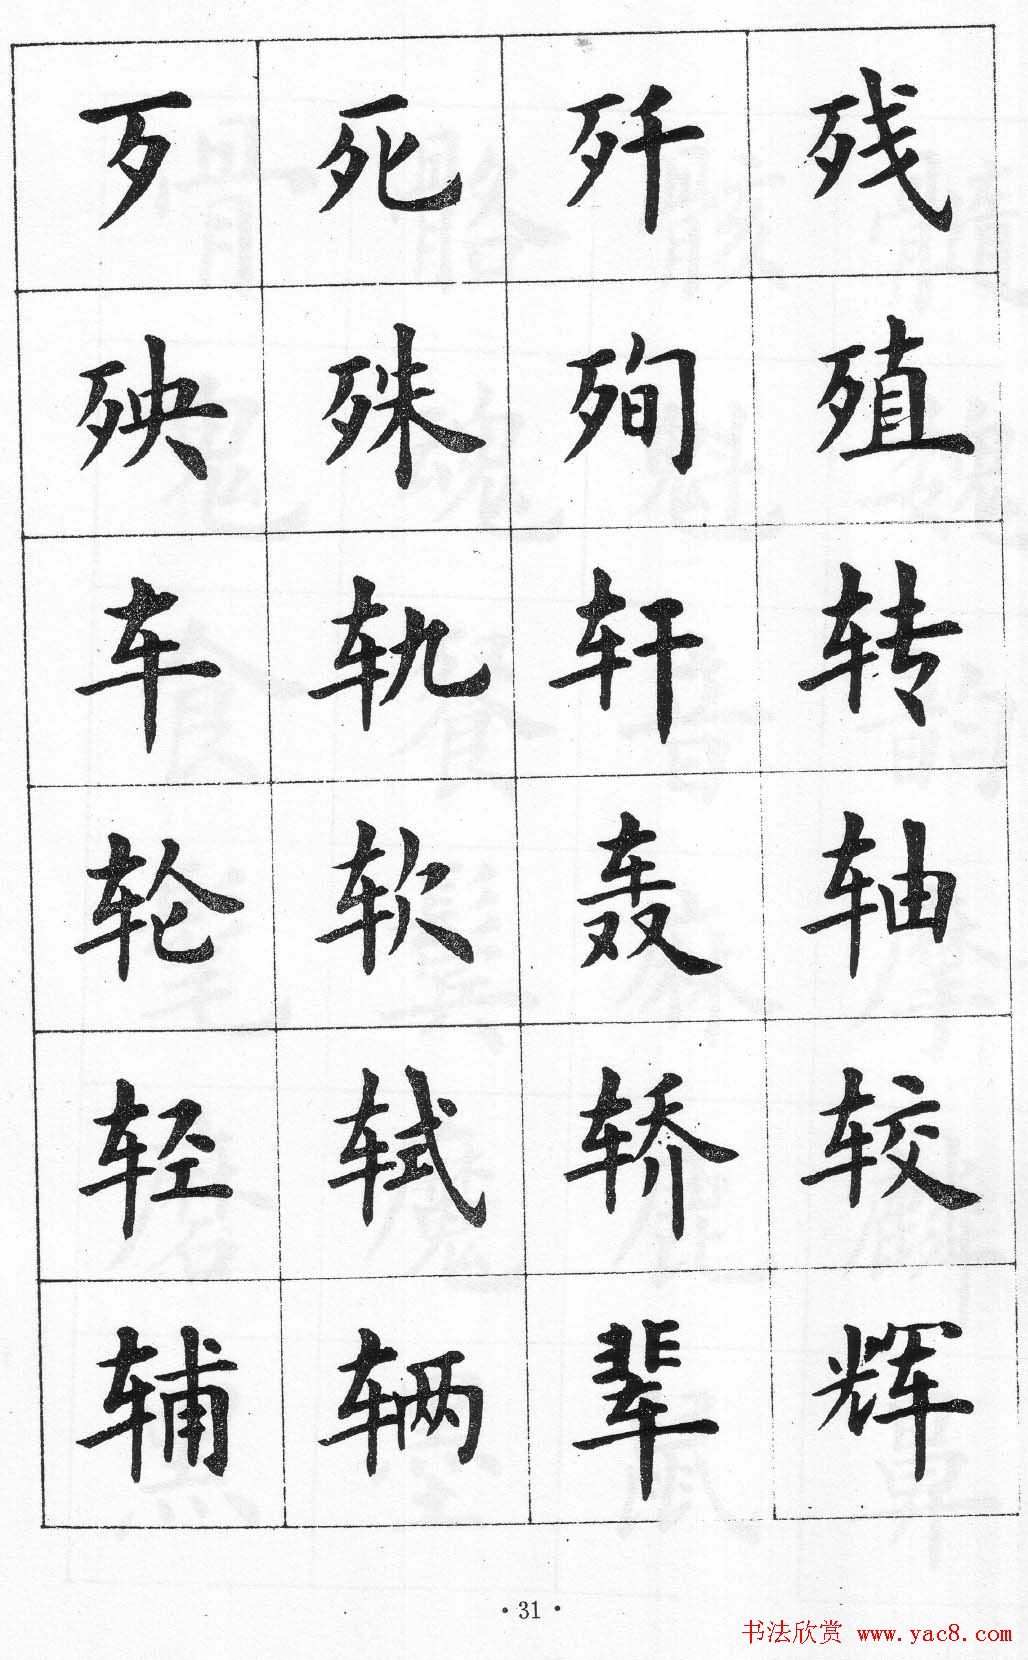 歹 死 歼 残
殃 殊 殉 殖
车 轨 轩 转
轮 软 轰 轴
轻 轼 轿 较
辅 辆 辈 辉
· 31 ·
书法欣赏 www.yac8.com